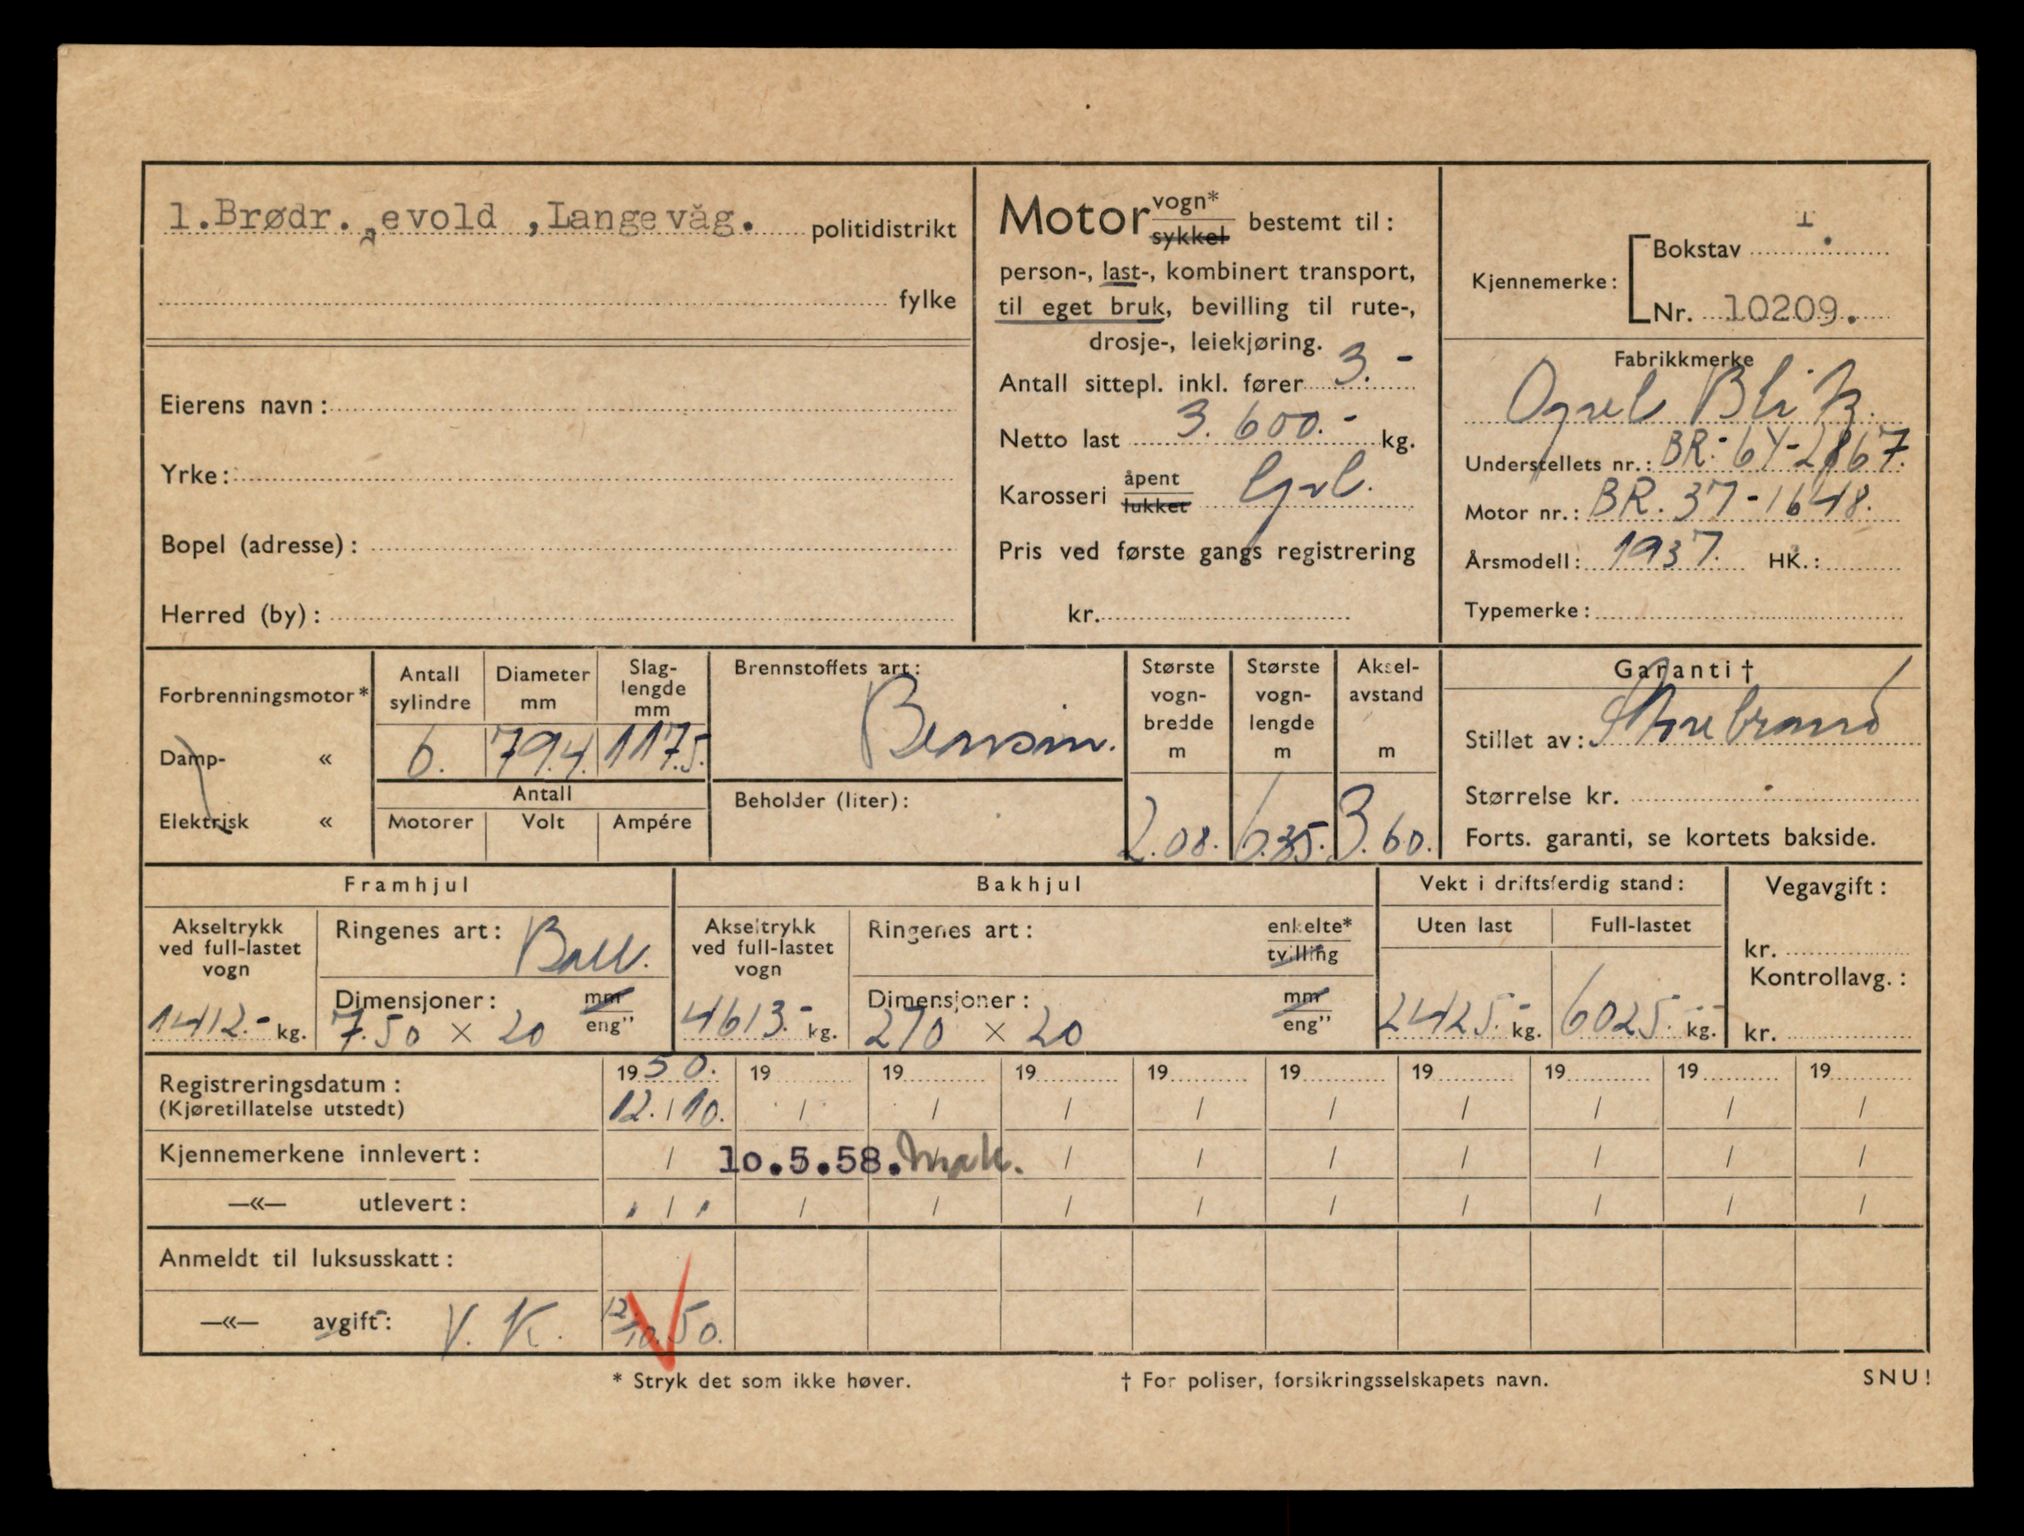 1.Brødr. evold ,Langevåg. politidistrikt
fylke
Eierens navn:
Yrke:
Bopel (adresse):
Herred (by):
Motor vogn* sykkel bestemt til:
person-, last-, kombinert transport,
til eget bruk, bevilling til rute-,
drosje-, leiekjøring.
Antall sittepl. inkl. fører 3.-
Netto last 3.600.- kg.
Karosseri åpent lukket
Pris ved første gangs registrering
kr.
Kjennemerke: Bokstav T.
Nr. 10209.
Fabrikkmerke
Opel Blitz.
Understellets nr.: BR.-6Y-2867.
Motor nr.: BR. 37-1648.
Årsmodell: 1937. HK.:
Typemerke:
Forbrenningsmotor*
Damp- «
Elektrisk «
Antall sylindre Diameter mm Slaglengde mm
6. 79.4. 117.5.
Antall
Motorer Volt Ampére
Brennstoffets art:
Bensin.
Beholder (liter):
Største vognbredde m
2.08.
Største vognlengde m
6.35.
Akselavstand m
3.60.
Garanti †
Stillet av: Storebrand
Størrelse kr.
Forts. garanti, se kortets bakside.
Framhjul
Akseltrykk ved full-lastet vogn
1412.- kg.
Ringenes art: Ball.
Dimensjoner: mm eng"
7.50 × 20
Bakhjul
Akseltrykk ved full-lastet vogn
4613.- kg.
Ringenes art: enkelte* tvilling
Dimensjoner: mm eng"
270 × 20
Vekt i driftsferdig stand:
Uten last Full-lastet
2425.- kg. 6025.- kg.
Vegavgift:
kr.
Kontrollavg.:
kr.
Registreringsdatum: 1950. 19 19 19 19 19 19 19 19 19
(Kjøretillatelse utstedt) 12./10. / / / / / / / / /
Kjennemerkene innlevert: / 10.5.58. / / / / / / /
—«— utlevert: / / / / / / / / / /
Anmeldt til luksusskatt:
—«— avgift: V. K. 12/10.50.
* Stryk det som ikke høver. † For poliser, forsikringsselskapets navn. SNU!